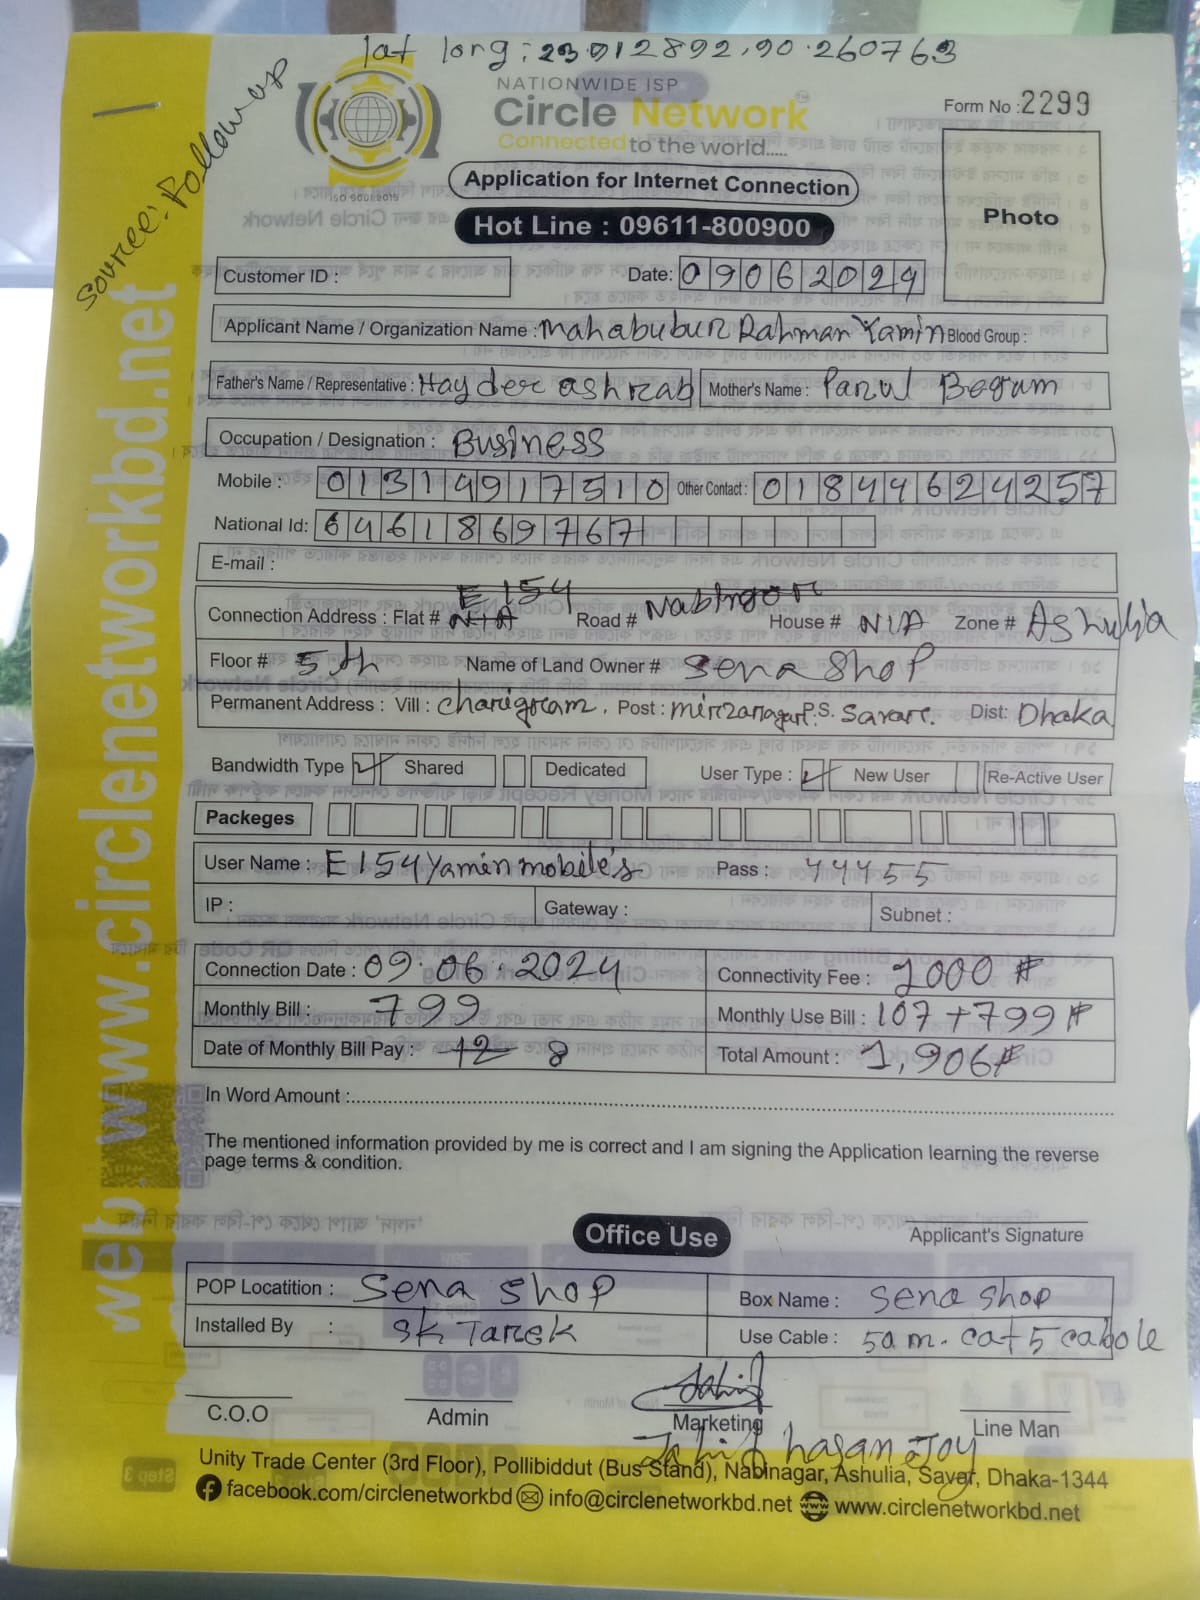 lat long: 23.912892,90.260763
Source:- Followup
NATIONWIDE ISP
Circle Network
Connected to the world.....
ISO 9001:2015
Form No : 2299
Application for Internet Connection
Hot Line : 09611-800900
Photo
Customer ID :
Date: 09062024
Applicant Name / Organization Name : Mahabubur Rahman Yamin Blood Group :
Father's Name / Representative : Hayder ashrab Mother's Name : Parul Begum
Occupation / Designation : Business
Mobile : 01314917510 Other Contact : 01844624257
National Id: 6461869767
E-mail :
E 154
Connection Address : Flat # N/A Road # Nabinagar House # N/A Zone # Ashulia
Floor # 5th Name of Land Owner # Sena Shop
Permanent Address : Vill : charigram. Post : mirzanagar P.S. Savar. Dist: Dhaka
Bandwidth Type Shared Dedicated User Type : New User Re-Active User
Packeges
User Name : E154Yamin mobile's Pass : 44455
IP : Gateway : Subnet :
Connection Date : 09.06.2024 Connectivity Fee : 1000 #
Monthly Bill : 799 Monthly Use Bill : 107+799 #
Date of Monthly Bill Pay : 12 8 Total Amount : 1,906#
In Word Amount :
The mentioned information provided by me is correct and I am signing the Application learning the reverse
page terms & condition.
Office Use
Applicant's Signature
POP Locatition : Sena shop Box Name : Sena shop
Installed By : SK Tarek Use Cable : 50 m. cat5 cabole
C.O.O Admin Marketing Line Man
Jahid hasan Joy
Unity Trade Center (3rd Floor), Pollibiddut (Bus Stand), Nabinagar, Ashulia, Savar, Dhaka-1344
facebook.com/circlenetworkbd info@circlenetworkbd.net www.circlenetworkbd.net
web: www.circlenetworkbd.net